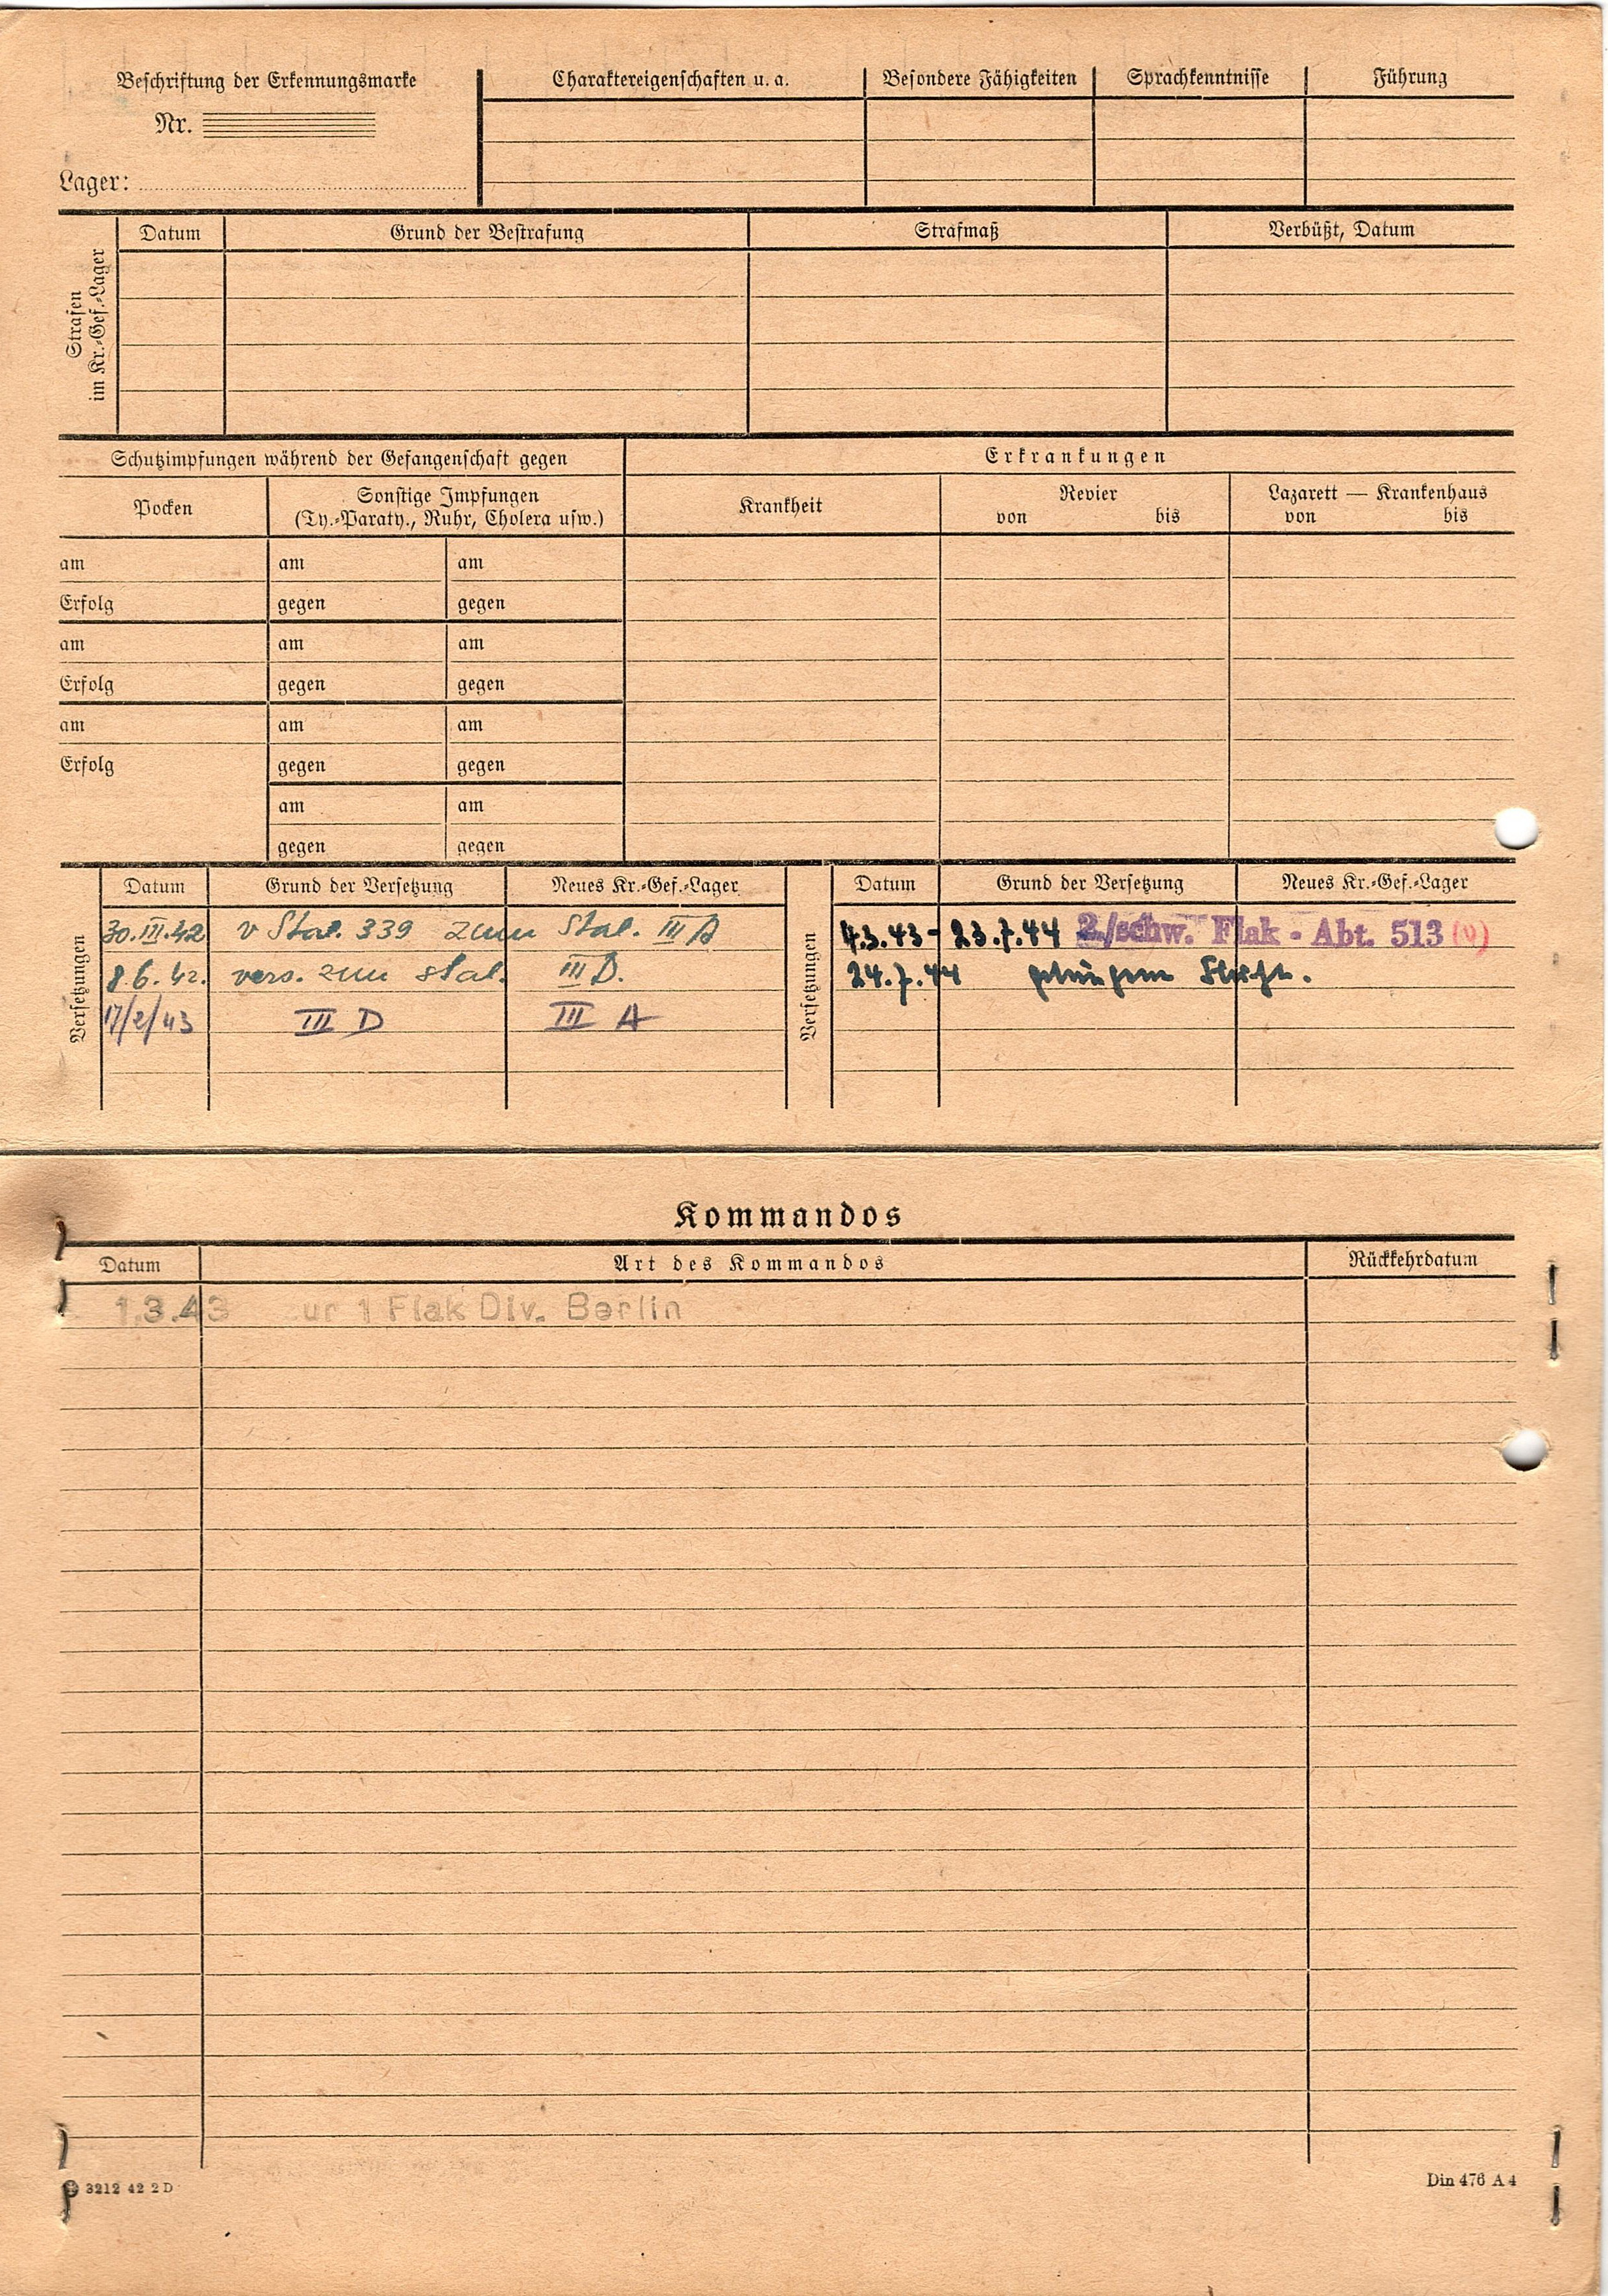 Beschriftung der Erkennungsmarke
Nr.
Lager:
Charaktereigenschaften u. a. Besondere Fähigkeiten Sprachkenntnisse Führung
Strafen
im Kr.-Gef.-Lager
Datum Grund der Bestrafung Strafmaß Verbüßt, Datum
Schutzimpfungen während der Gefangenschaft gegen Erkrankungen
Pocken
Sonstige Impfungen
(Ty.-Paraty., Ruhr, Cholera usw.)
Krankheit
Revier
von bis
Lazarett — Krankenhaus
von bis
am am am
Erfolg gegen gegen
am am am
Erfolg gegen gegen
am am am
Erfolg gegen gegen
am am
gegen gegen
Versetzungen
Datum Grund der Versetzung Neues Kr.-Gef.-Lager
30.III.42 v Stal. 339 zum Stal. III A
8.6.42. vers. zum Stal. III D.
17/2/43 III D III A
Versetzungen
Datum Grund der Versetzung Neues Kr.-Gef.-Lager
4.3.43 - 23.7.44 2./schw. Flak - Abt. 513 (v)
24.7.44 gelungene Flucht.
Kommandos
Datum Art des Kommandos Rückkehrdatum
1.3.43 1 Flak Div. Berlin
3212 42 2 D
Din 476 A 4